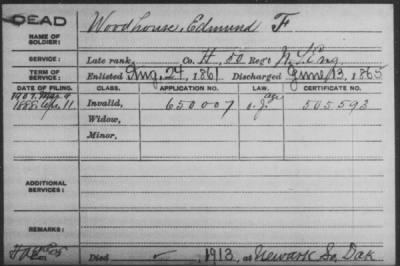 DEAD
NAME OF SOLDIER: Woodhouse, Edmund F.
SERVICE: Late rank, Co. H, 50 Reg't N.Y. Eng
TERM OF SERVICE: Enlisted Aug. 24, 1861 Discharged June 13, 1865
DATE OF FILING. CLASS. APPLICATION NO. LAW. CERTIFICATE NO.
1907
1888 Apr. 11 Invalid, 650007 505592
Widow,
Minor,
ADDITIONAL SERVICES:
REMARKS:
Died 1913, at Newark So. Dak